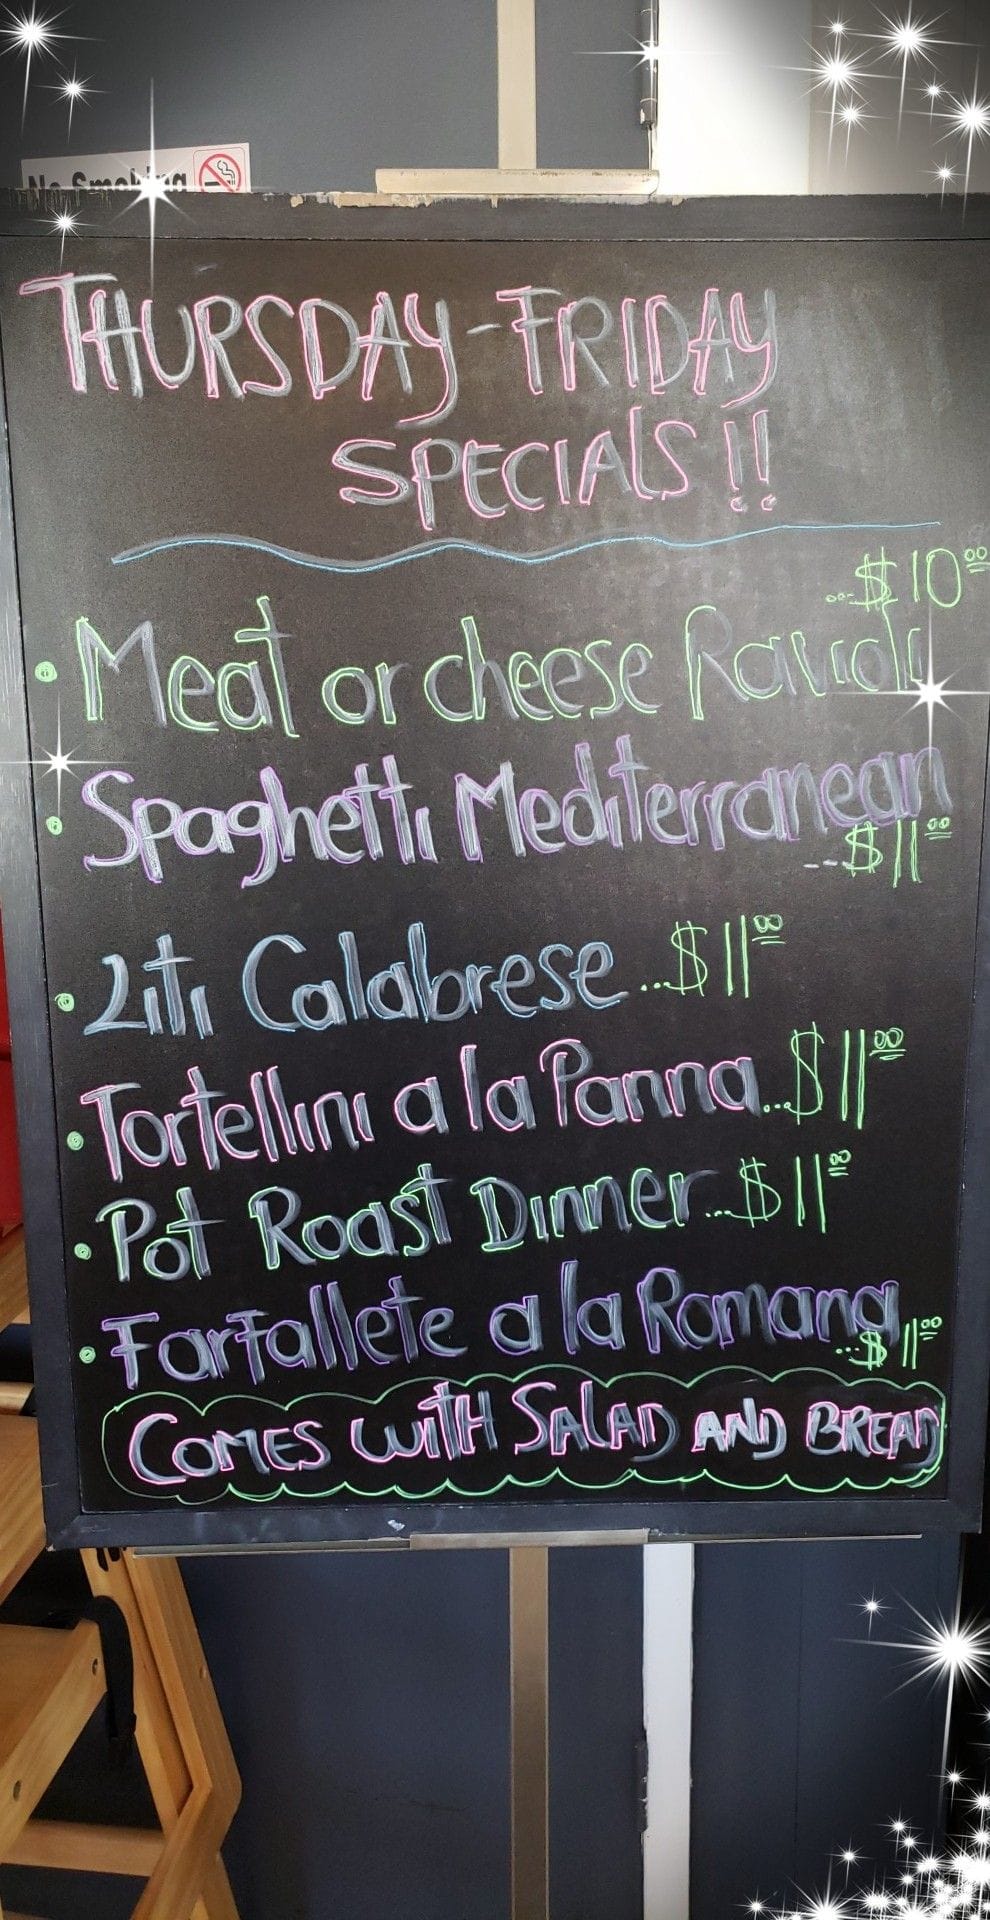 No Smoking
THURSDAY-FRIDAY
SPECIALS!!
...$10.00
• Meat or cheese Ravioli
• Spaghetti Mediterranean
...$11.00
• Ziti Calabrese...$11.00
• Tortellini a la Panna...$11.00
• Pot Roast Dinner...$11.00
• Farfallete a la Romana
...$11.00
COMES WITH SALAD AND BREAD